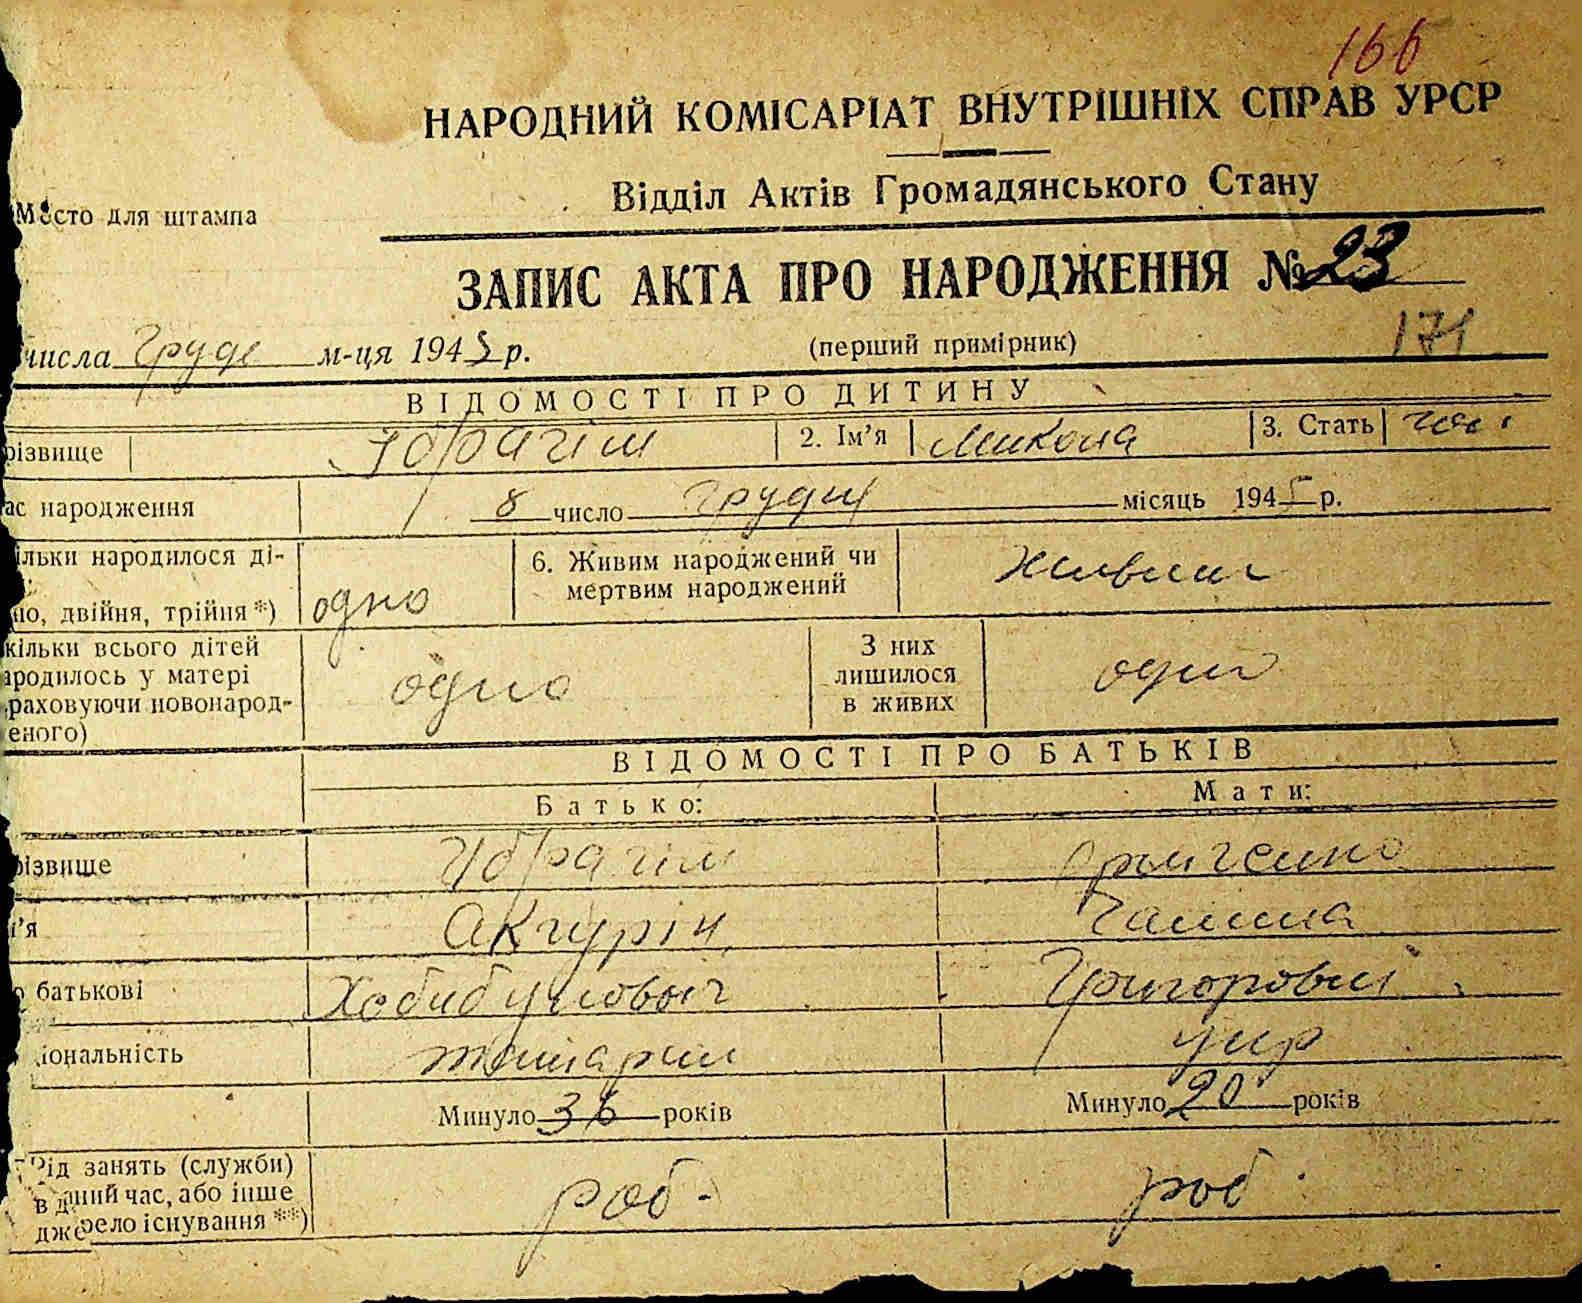 166
НАРОДНИЙ КОМІСАРІАТ ВНУТРІШНІХ СПРАВ УРСР
Відділ Актів Громадянського Стану
Место для штампа
ЗАПИС АКТА ПРО НАРОДЖЕННЯ № 23
числа груде м-ця 1945 р. (перший примірник) 171
ВІДОМОСТІ ПРО ДИТИНУ
різвище Ібрагім 2. Ім'я Микола 3. Стать чол.
ас народження 8 число грудня місяць 1945 р.
ільки народилося ді- 6. Живим народжений чи живим
но, двійня, трійня *) одно мертвим народжений
кільки всього дітей З них
ародилось у матері одно лишилося одно
раховуючи новонарод- в живих
еного)
ВІДОМОСТІ ПРО БАТЬКІВ
Батько: Мати:
різвище Ібрагім
м'я Акгурін Галина
о батькові Хабибуловыч Григоровні
іональність татарин укр
Минуло 36 років Минуло 20 років
Рід занять (служби)
в даний час, або інше роб. роб.
джерело існування **)